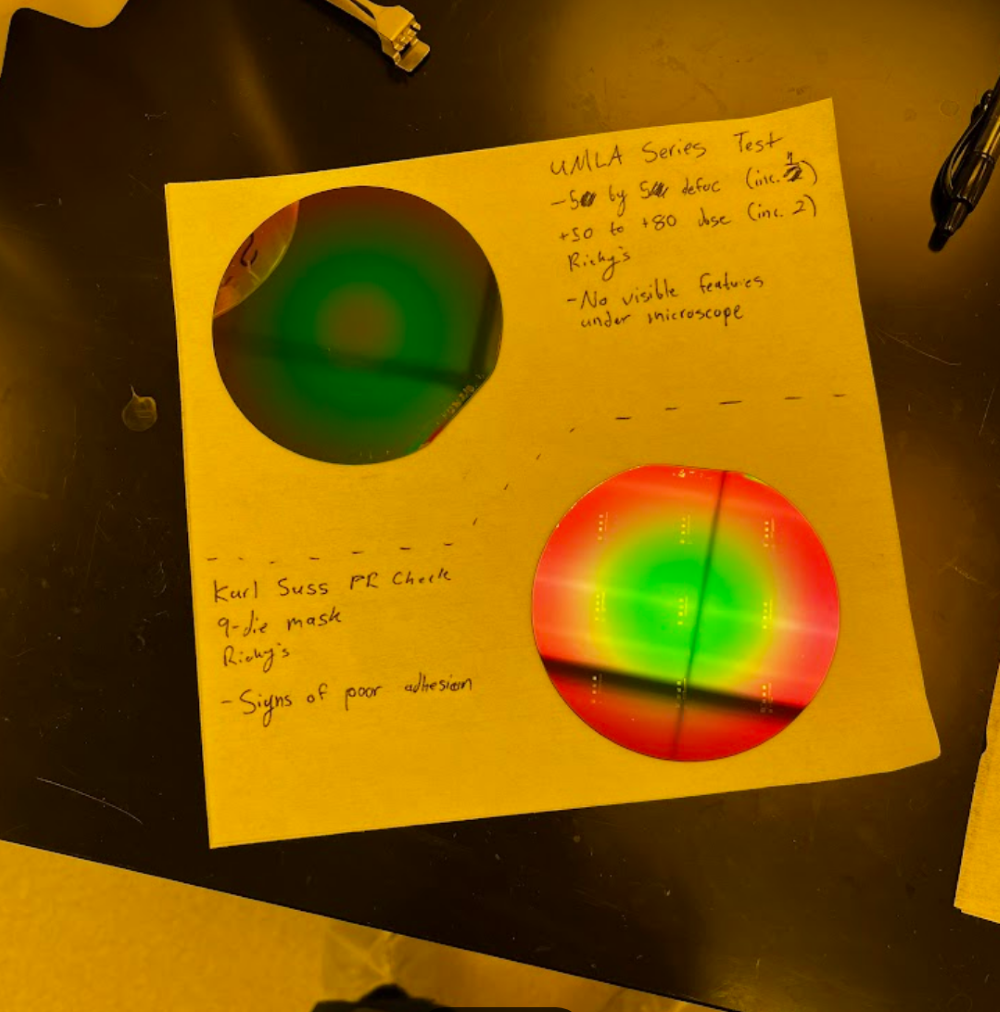 UMLA Series Test
-5 by 5 defoc (inc. 1)
+50 to +80 dose (inc. 2)
Ricky's
-No visible features
under microscope
Karl Suss PR Check
9-die mask
Ricky's
-Signs of poor adhesion